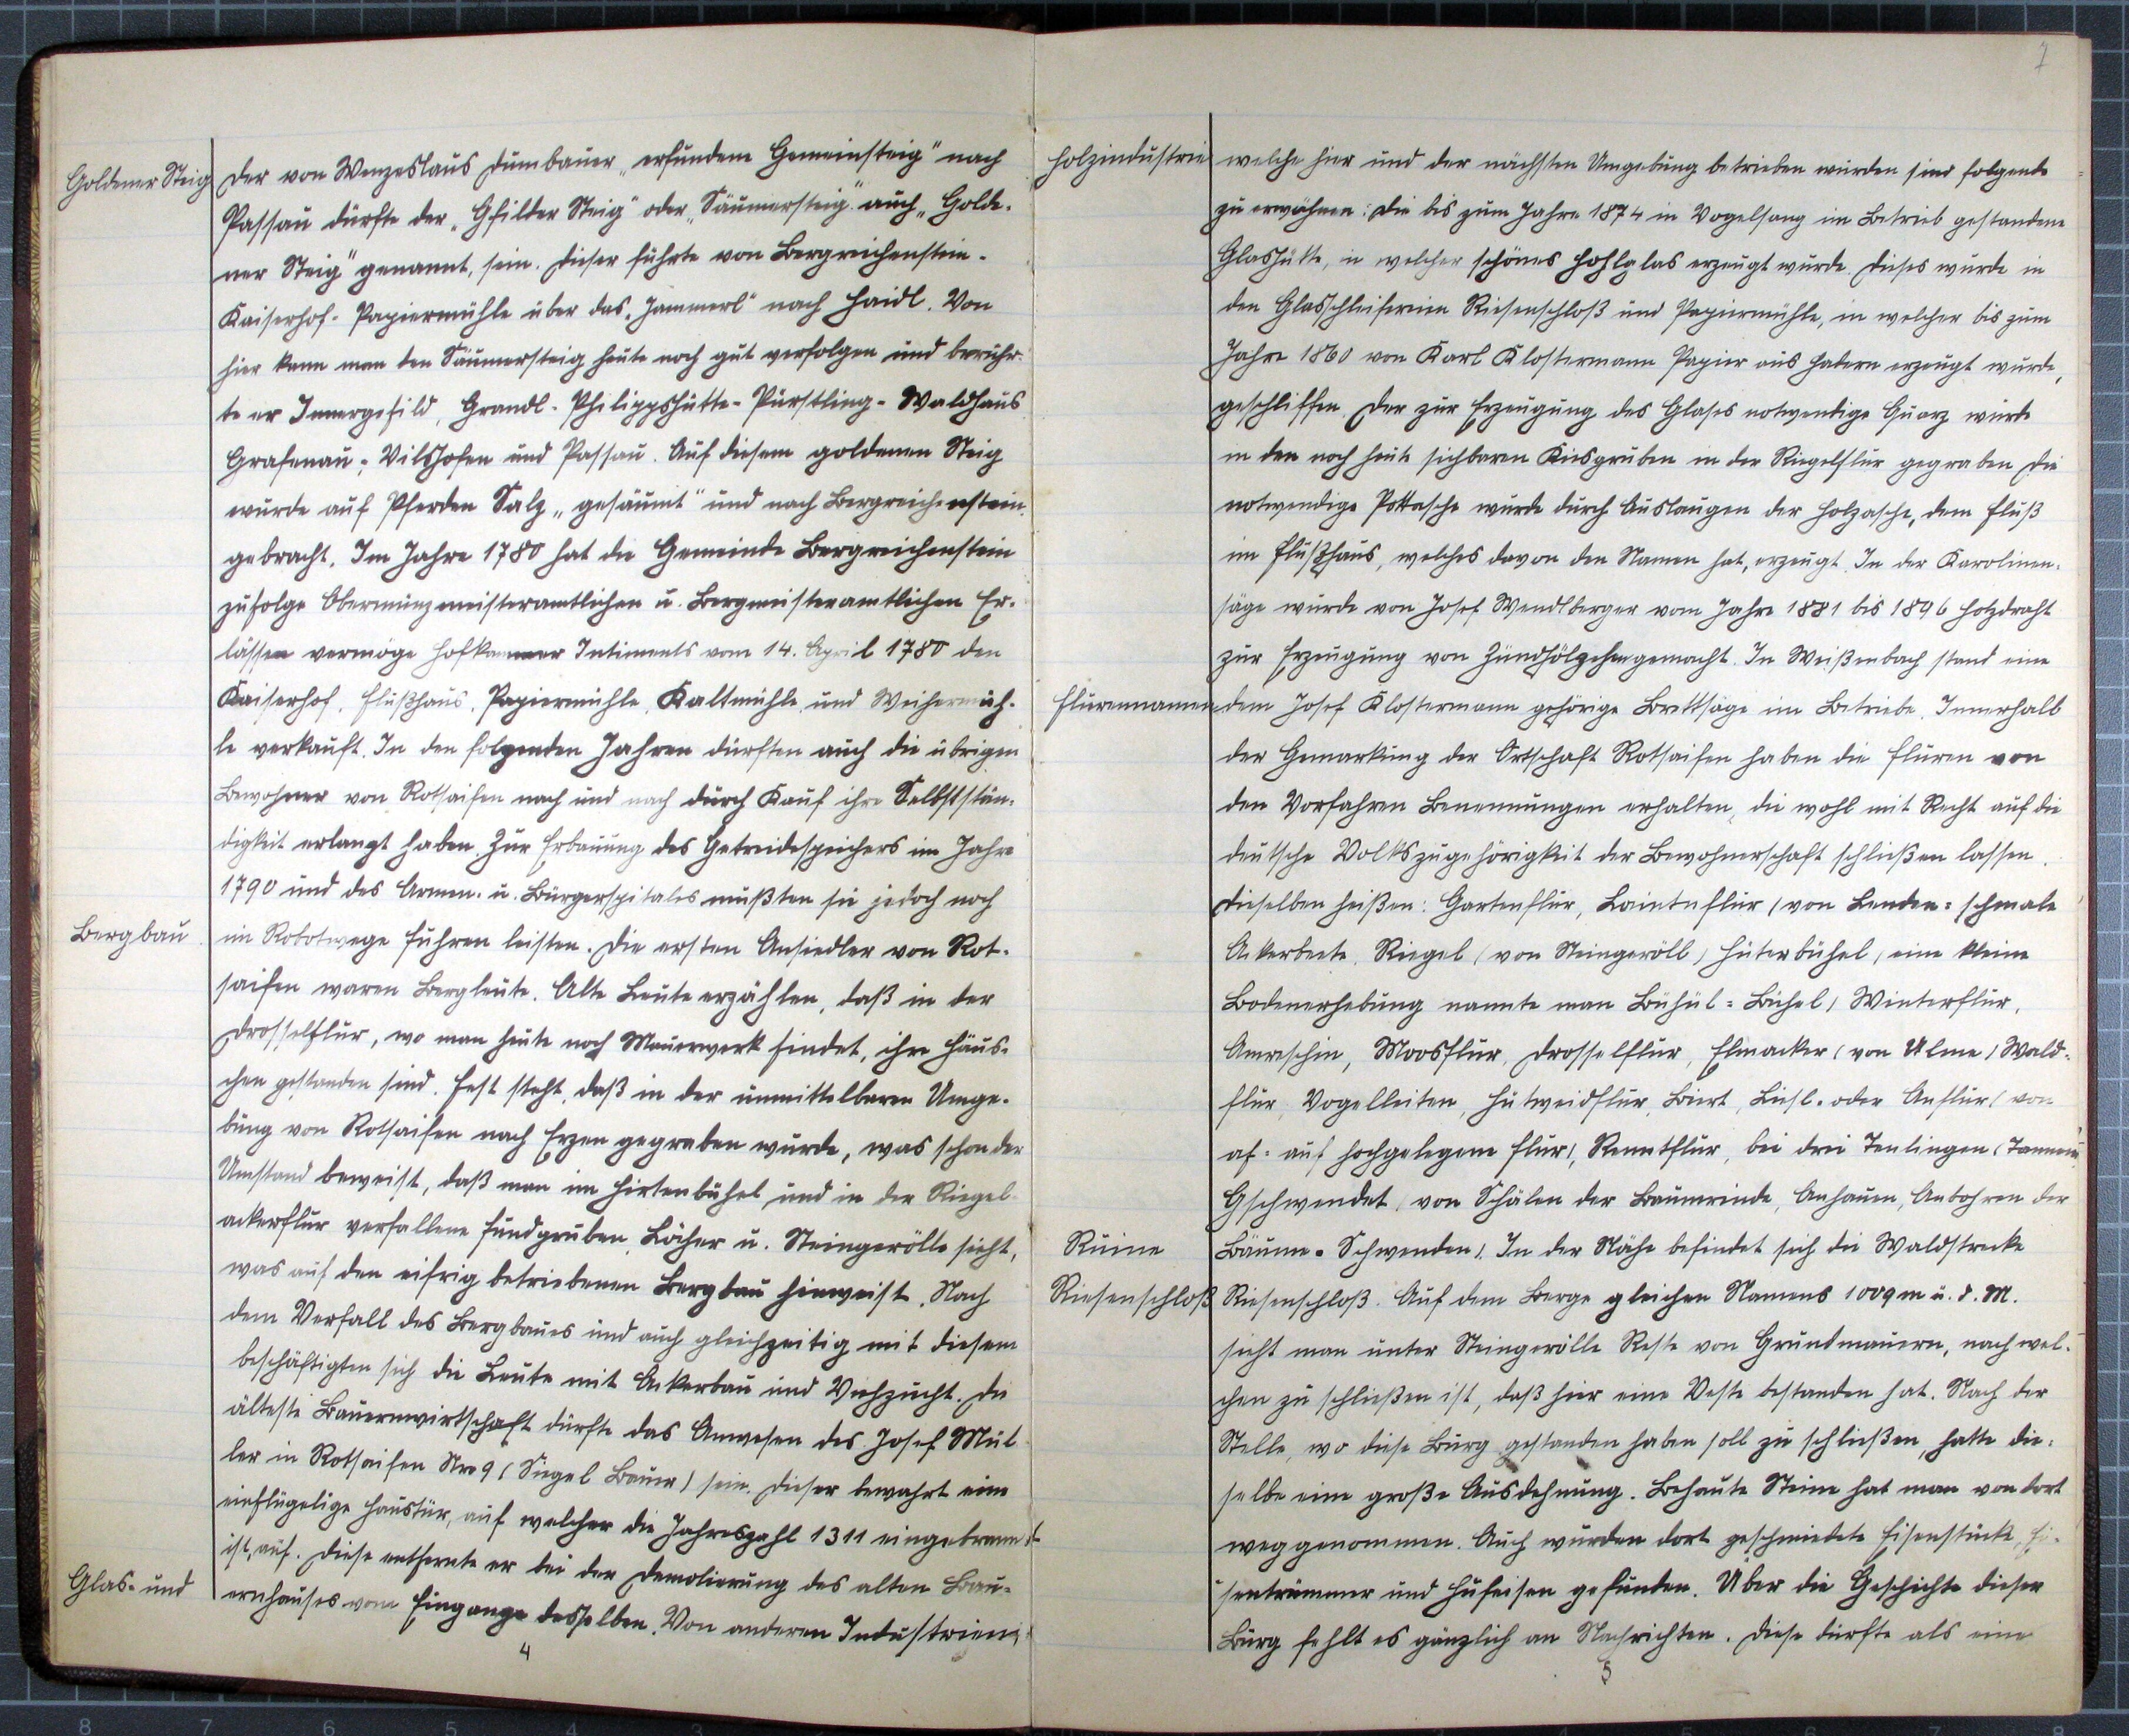 7
Goldener Steig
Der von Wenzeslaus Dumbauer „erfundene Gemeinsteig" nach
Passau dürfte der „Gfilder Steig" oder „Säumersteig" auch „Golde-
ner Steig" genannt, sein. Dieser führte von Bergreichenstein-
Kaiserhof-Papiermühle über das „Jammerl" nach Haidl. Von
hier kann man den Säumersteig heute noch gut verfolgen und berühr-
te er Innergefild, Grandl-Philippshütte-Pürstling-Waldhaus
Grafenau; Vilshofen und Passau. Auf diesem goldenen Steig
wurde auf Pferden Salz „gesäumt" und nach Bergreichenstein
gebracht. Im Jahre 1780 hat die Gemeinde Bergreichenstein
zufolge Obermünzmeisteramtlichen u. Bergmeisteramtlichen Er-
lässen vermöge Hofkammer Intiments vom 14. April 1780 den
Kaiserhof, Flußhaus, Papiermühle, Kaltmühle und Weihermüh-
le verkauft. In den folgenden Jahren dürften auch die übrigen
Bewohner von Rotsaifen nach und nach durch Kauf ihre Selbststän-
digkeit erlangt haben. Zur Erbauung des Getreidespeichers im Jahre
1790 und des Armen- u. Bürgerspitales mußten sie jedoch noch
Bergbau
im Robotwege Fuhren leisten. Die ersten Ansiedler von Rot-
saifen waren Bergleute. Alte Leute erzählen, daß in der
Drosselflur, wo man heute noch Mauerwerk findet, ihre Häus-
chen gestanden sind. Fest steht, daß in der unmittelbaren Umge-
bung von Rotsaifen nach Erzen gegraben wurde, was schon der
Umstand beweist, daß man im Hirtenbühel und in der Riegel-
ackerflur verfallene Fundgruben, Löcher u. Steingerölle sieht,
was auf den eifrig betriebenen Bergbau hinweist. Nach
dem Verfall des Bergbaues und auch gleichzeitig mit diesem
beschäftigten sich die Leute mit Ackerbau und Viehzucht. Die
älteste Bauernwirtschaft dürfte das Anwesen des Josef Mül
ler in Rotsaifen Nro 9 (Siegel Bauer) sein. Dieser bewahrt eine
einflügelige Haustür, auf welcher die Jahreszahl 1311 eingebrannt
ist, auf. Diese entfernte er bei der Demolierung des alten Bau-
Glas- und
ernhauses vom Eingange desselben. Von anderen Industrien,
4
Holzindustrie
welche hier und der nächsten Umgebung betrieben wurden sind folgende
zu erwähnen: Die bis zum Jahre 1874 in Vogelsang im Betrieb gestandene
Glashütte, in welcher schönes Hohlglas erzeugt wurde. Dieses wurde in
den Glasschleifereien Riesenschloß und Papiermühle, in welcher bis zum
Jahre 1860 von Karl Klostermann Papier aus Hadern erzeugt wurde,
geschliffen. Der zur Erzeugung des Glases notwendige Quarz wurde
in den noch heute sichbaren Kiesgruben in der Riegelflur gegraben. Die
notwendige Pottasche wurde durch Auslaugen der Holzasche, dem Fluß
im Flußhaus, welches davon den Namen hat, erzeugt. In der Karolinen-
säge wurde von Josef Wendlberger vom Jahre 1881 bis 1896 Holzdraht
zur Erzeugung von Zündhölzchen gemacht. In Weißenbach stand eine
Flurennamen
dem Josef Klostermann gehörige Brettsäge im Betriebe. Innerhalb
der Gemarkung der Ortschaft Rotsaifen haben die Fluren von
den Vorfahren Benennungen erhalten, die wohl mit Recht auf die
deutsche Volkszugehörigkeit der Bewohnerschaft schließen lassen.
Dieselben heißen: Gartenflur, Laintnflur (von Lenden = schmale
Ackerbeete, Riegel (von Steingeröll) Hüterbühel, (eine kleine
Bodenerhebung nannte man Bühül = Bichel) Winterflur,
Moosflur, Drosselflur, Elmacker (von Ulme) Wald-
flur, Vogelleiten, Hutweidflur, oder Auflur (von
af = auf hochgelegene Flur), Renntflur, bei drei Tenlingen (Tannen)
Gschwendet (von Schälen der Baumrinde, Anhauen, Anbohren der
Ruine
Bäume = Schwenden). In der Nähe befindet sich die Waldstrecke
Riesenschloß
Riesenschloß. Auf dem Berge gleichen Namens 1009 m ü. d. M.
sieht man unter Steingerölle Reste von Grundmauern, nach wel-
chen zu schließen ist, daß hier eine Veste bestanden hat. Nach der
Stelle, wo diese Burg gestanden haben soll zu schließen, hatte die-
selbe eine große Ausdehnung. Behaute Steine hat man von dort
weggenommen. Auch wurden dort geschmiedete Eisenstücke, Ei-
sentrümmer und Hufeisen gefunden. Über die Geschichte dieser
Burg fehlt es gänzlich an Nachrichten. Diese dürfte als eine
5